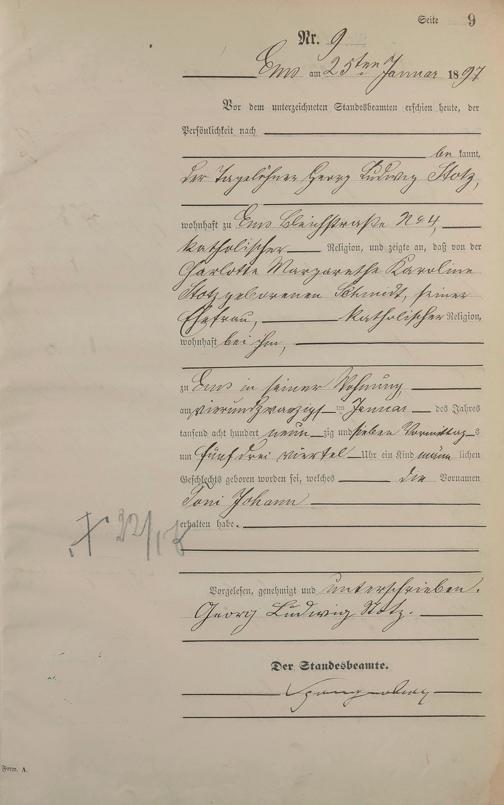 Seite 9
Nr. 9
Ems am 25ten Januar 1897
Vor dem unterzeichneten Standesbeamten erschien heute, der
Persönlichkeit nach
be kannt,
der Tagelöhner Georg Ludwig Stotz,
wohnhaft zu Ems Bleichstraße No 4,
katholischer Religion, und zeigte an, daß von der
Charlotte Margarethe Karoline
Stotz geborenen Schmidt, seiner
Ehefrau, katholischer Religion,
wohnhaft bei ihm,
zu Ems in seiner Wohnung,
am vierundzwanzigsten Januar des Jahres
tausend acht hundert neunzig und sieben Vormittags
um fünf drei viertel Uhr ein Kind männlichen
Geschlechts geboren worden sei, welches die Vornamen
Toni Johann
erhalten habe.
Vorgelesen, genehmigt und unterschrieben.
Georg Ludwig Stotz.
Der Standesbeamte.
Form. A.